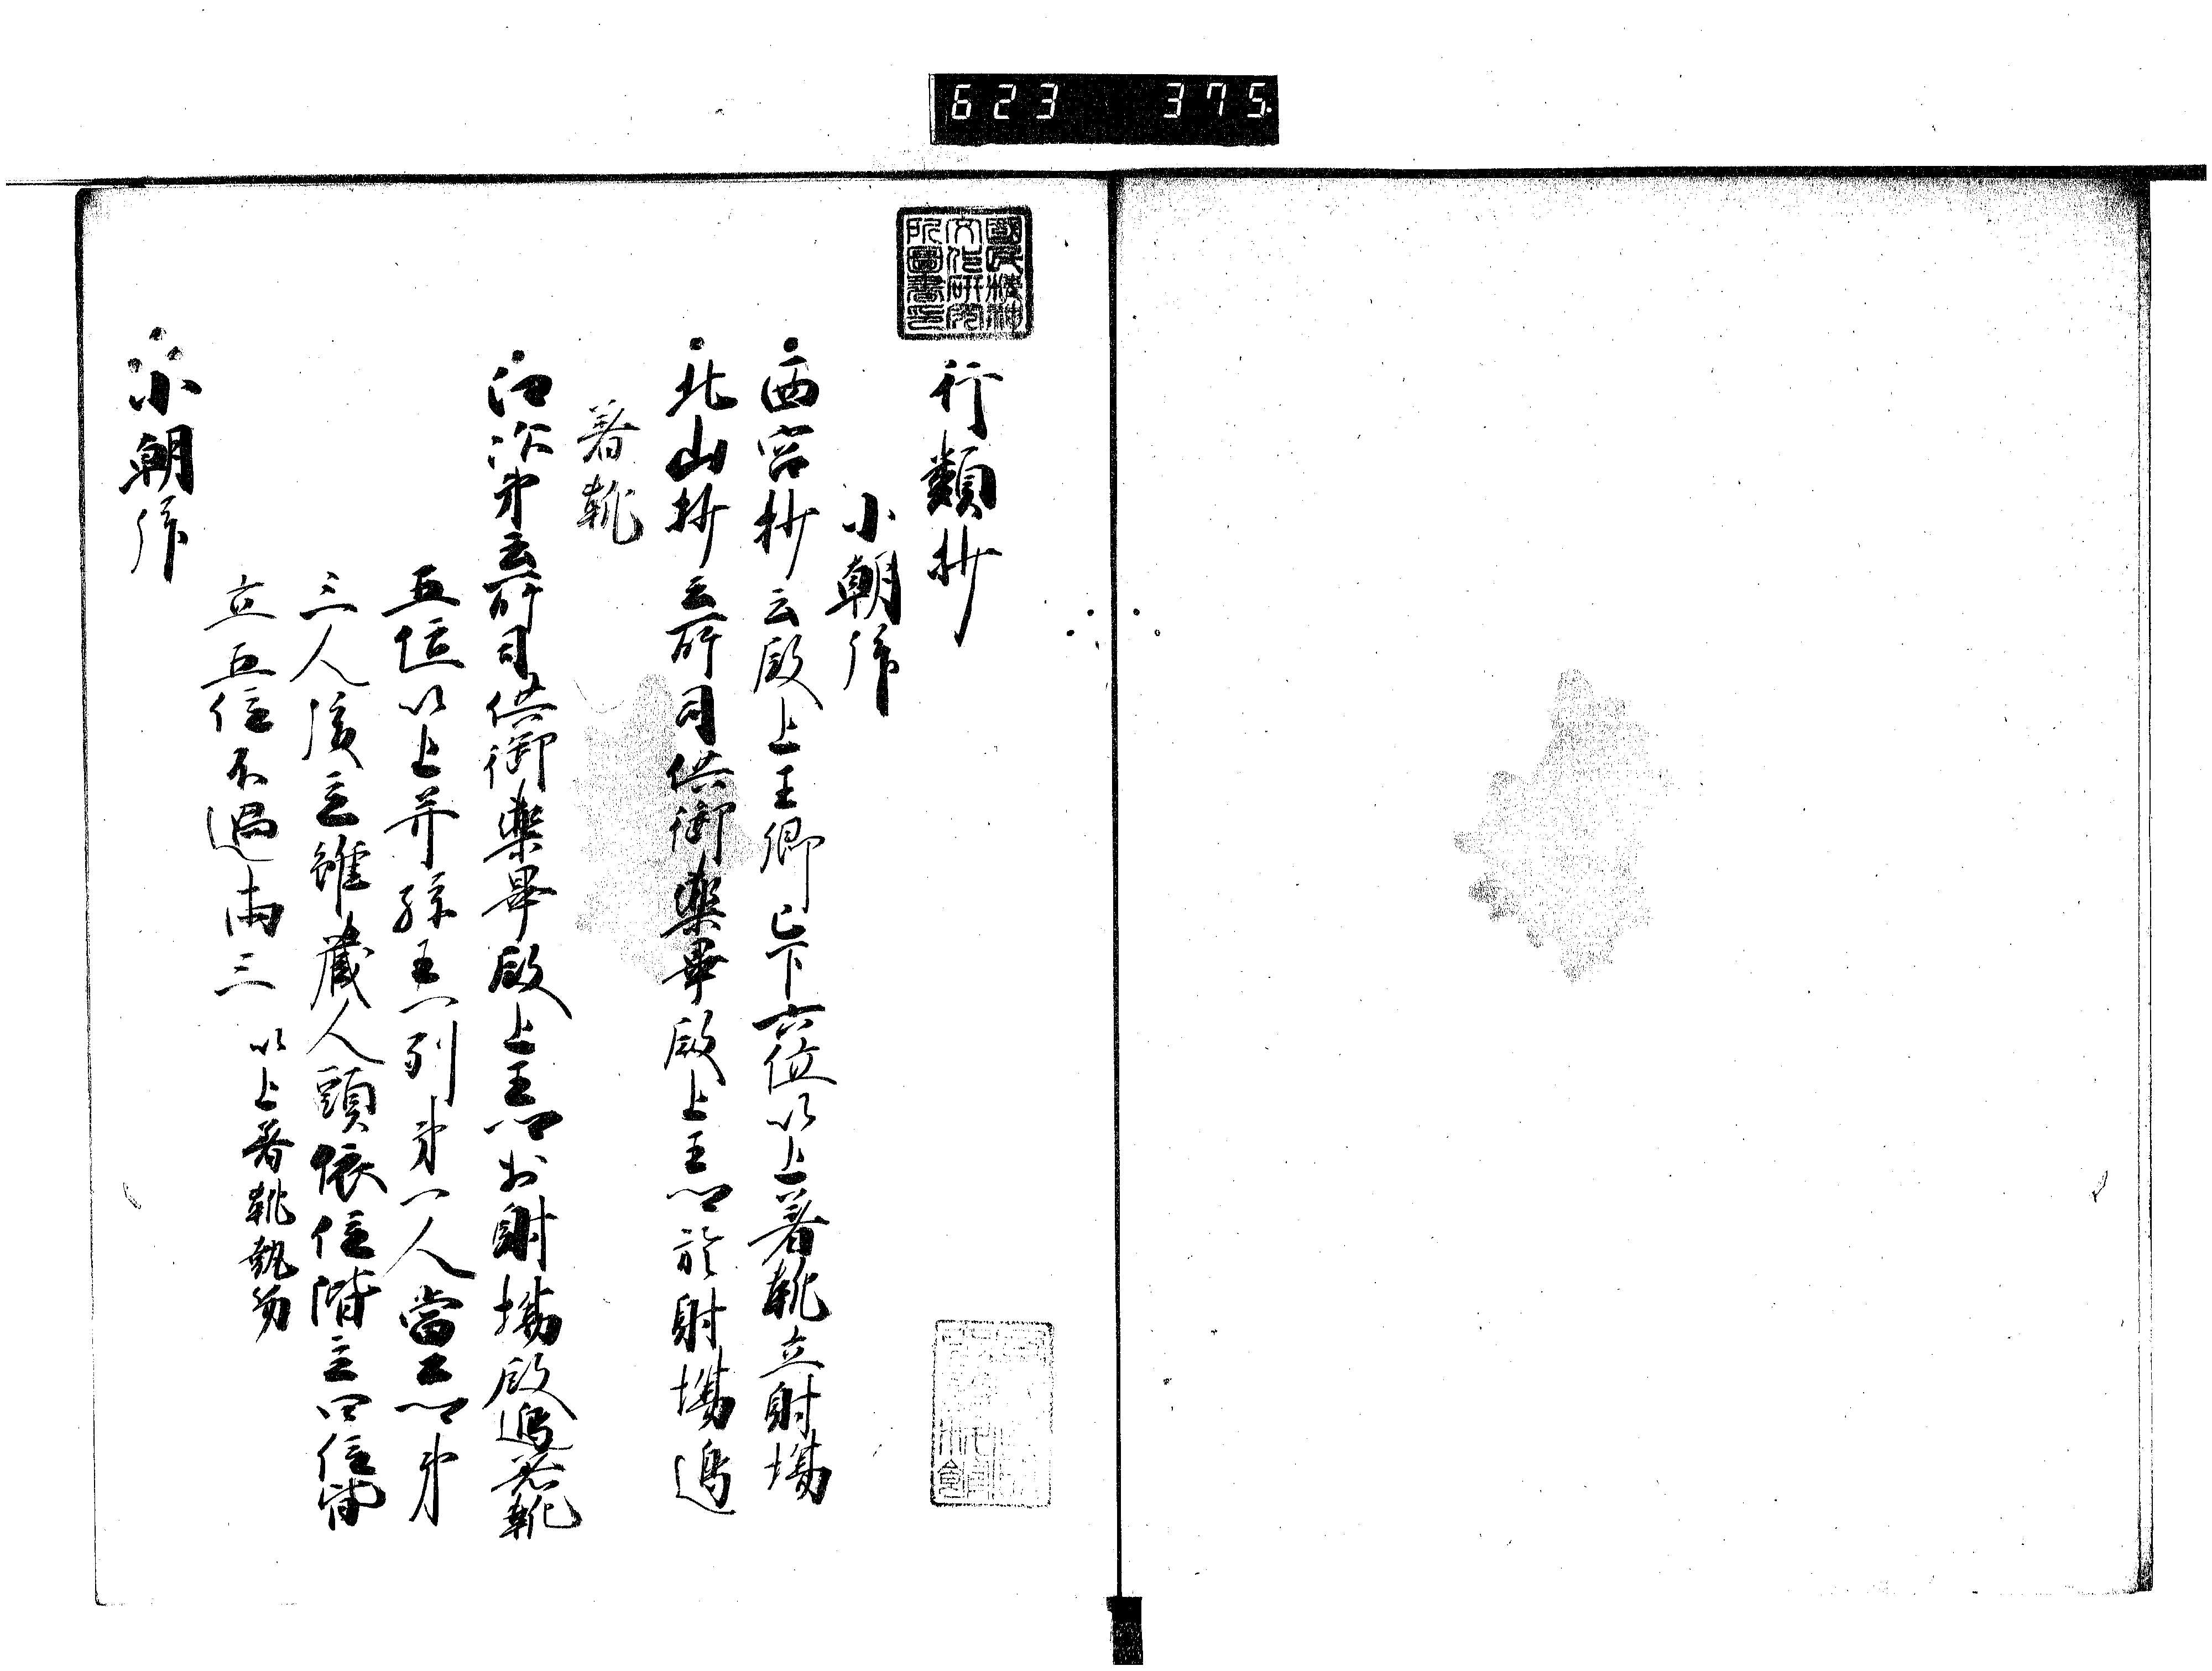 623 375
國民精神
文化研究
所圖書印
行類抄
小朝拝
西宮抄云殿上王卿已下六位以上著靴立射場
北山抄云所司供御薬畢殿上王卿於射場邊
著靴
江次第云所司供御薬畢殿上王卿於射場殿邊著靴
五位以上并孫王一列第一人當王卿第
三人後立雖蔵人頭依位階立四位皆
立五位不過両三 以上著靴執笏
小朝拝